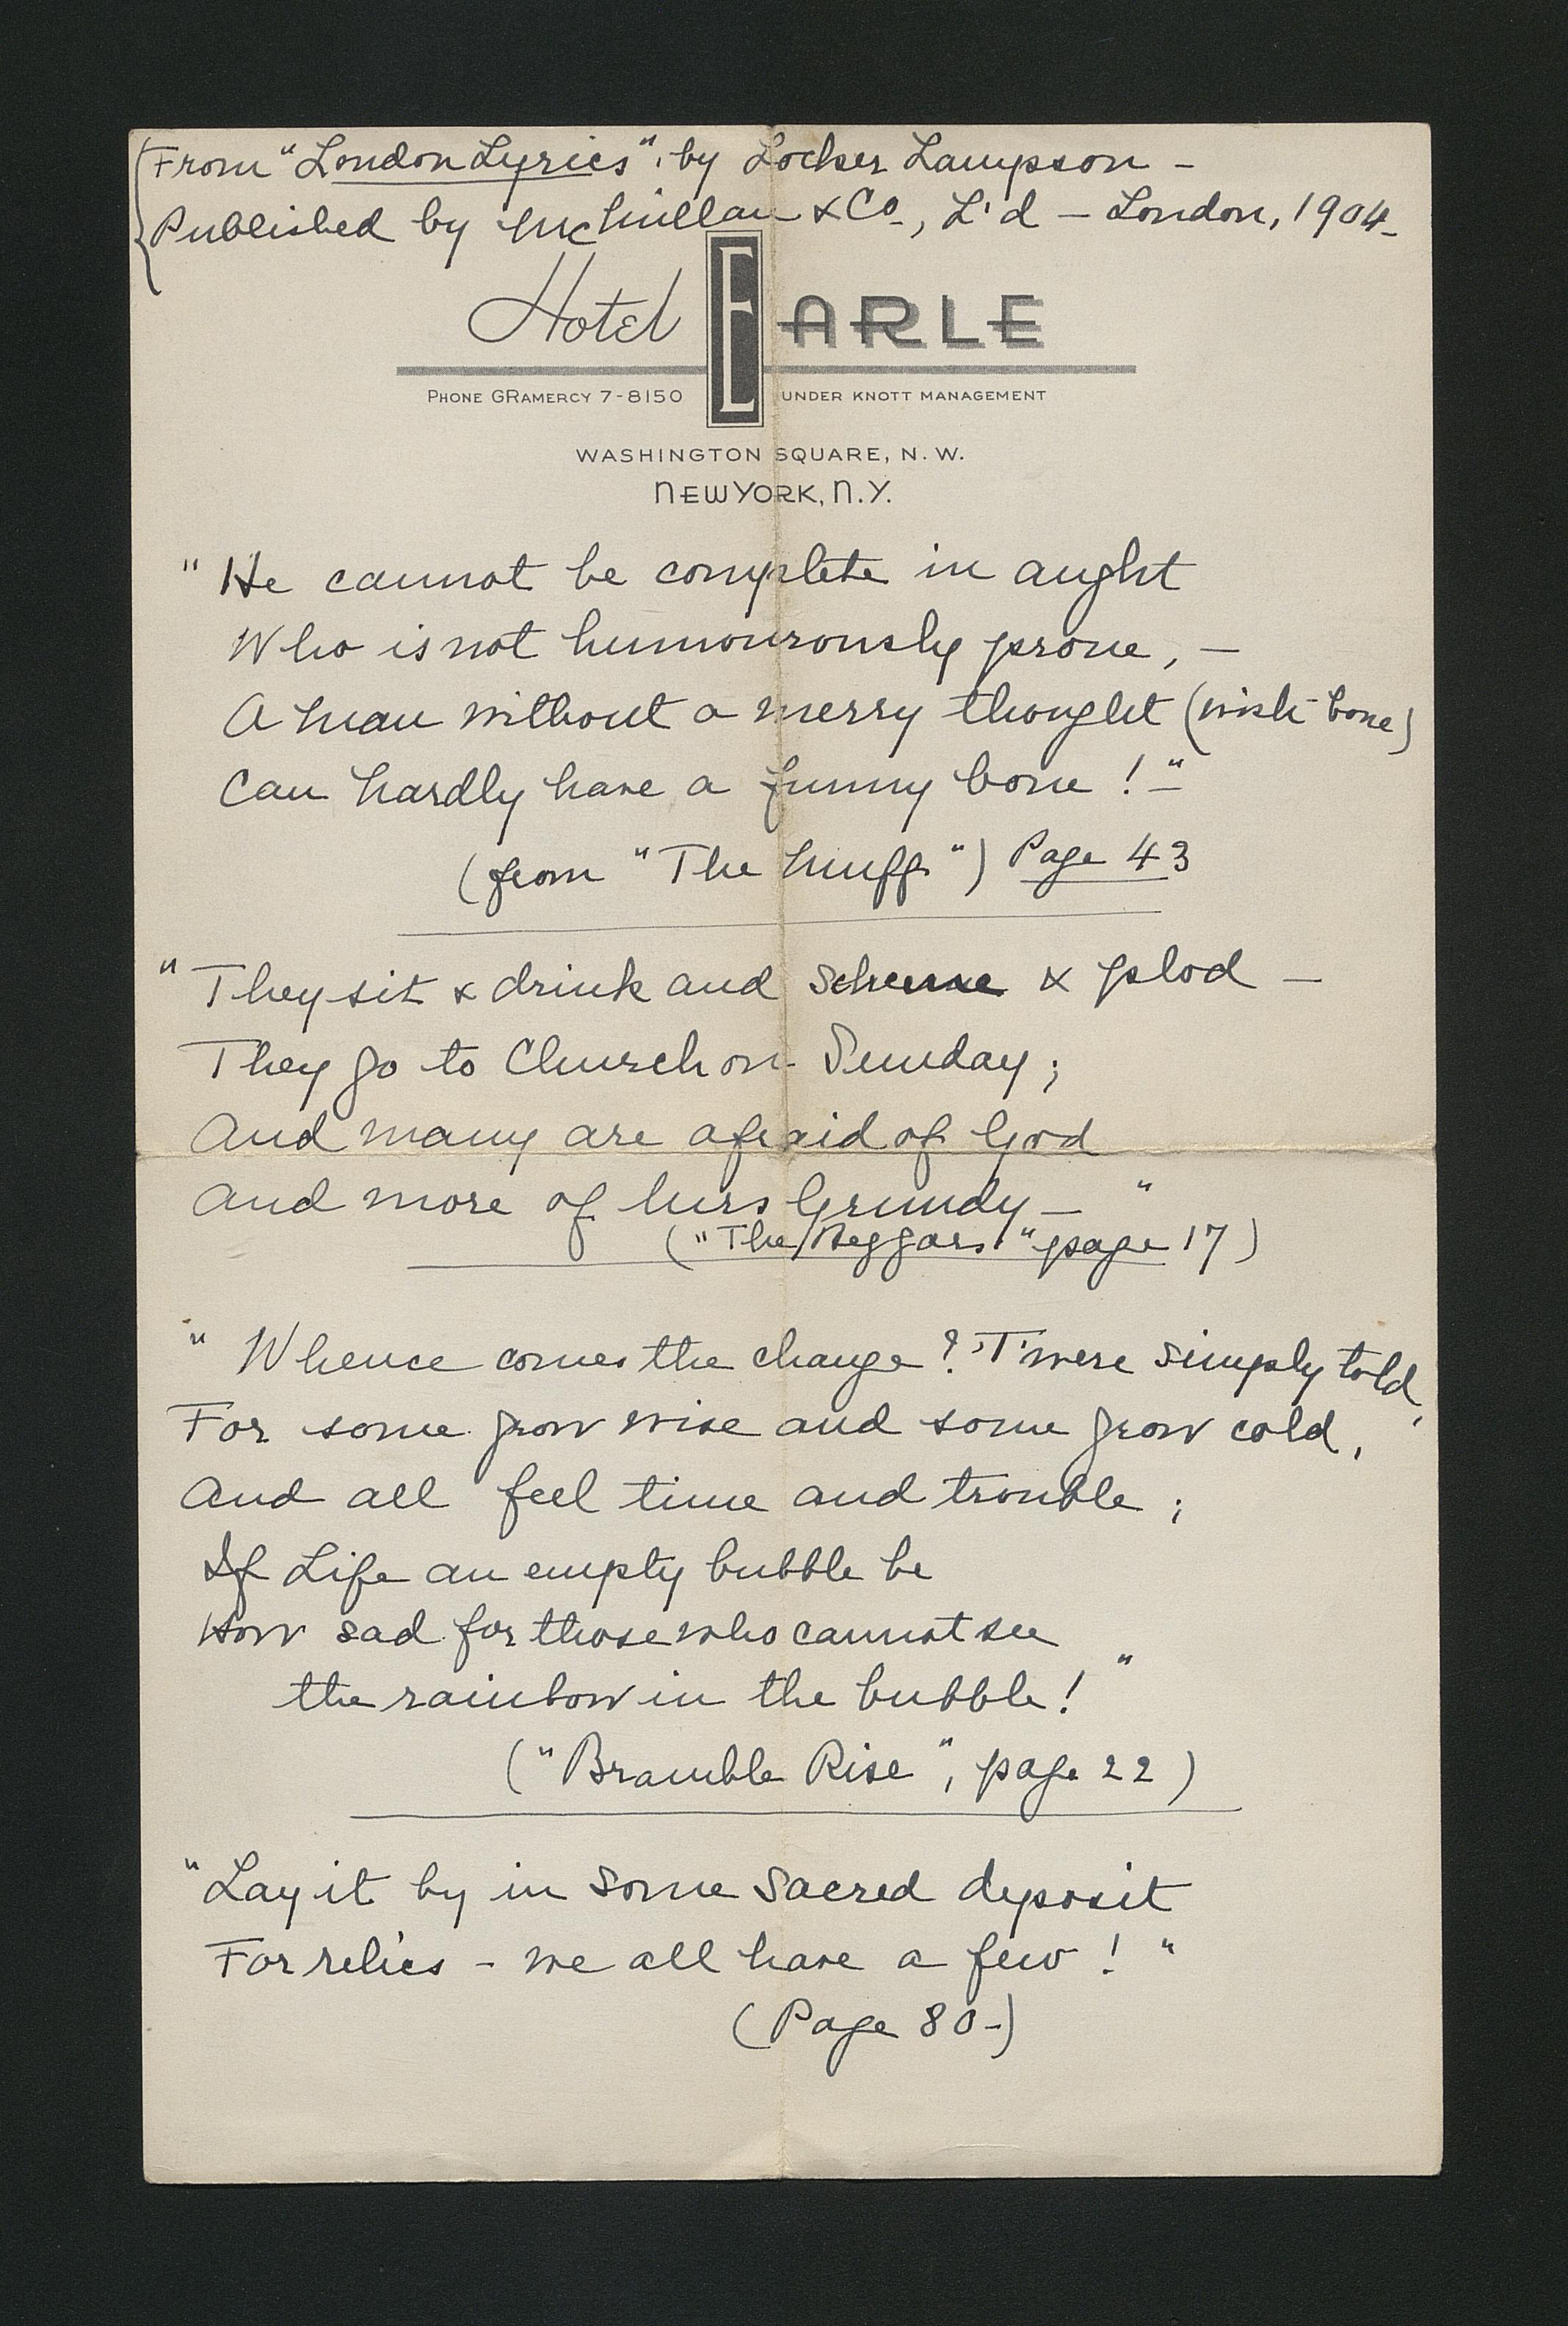 From "London Lyrics", by Locker Lampson -
Published by McMillan & Co., L'd - London, 1904-
Hotel EARLE
PHONE GRAMERCY 7-8150 UNDER KNOTT MANAGEMENT
WASHINGTON SQUARE, N. W.
NEW YORK, N.Y.
"He cannot be complete in aught
Who is not humourously prone, -
A man without a merry thought (wish-bone)
Can hardly have a funny bone!-"
(from "The Muff") Page 43
"They sit & drink and scheme & plod -
They go to Church on Sunday;
And many are afraid of God
And more of Mrs Grundy - "
("The Beggars" page 17)
"Whence comes the change? 'T'were simply told,
For some grow wise and some grow cold,
And all feel time and trouble;
If Life an empty bubble be
How sad for those who cannot see
the rainbow in the bubble!"
("Bramble Rise", page 22)
"Lay it by in some sacred deposit
For relics - we all have a few!"
(Page 80-)